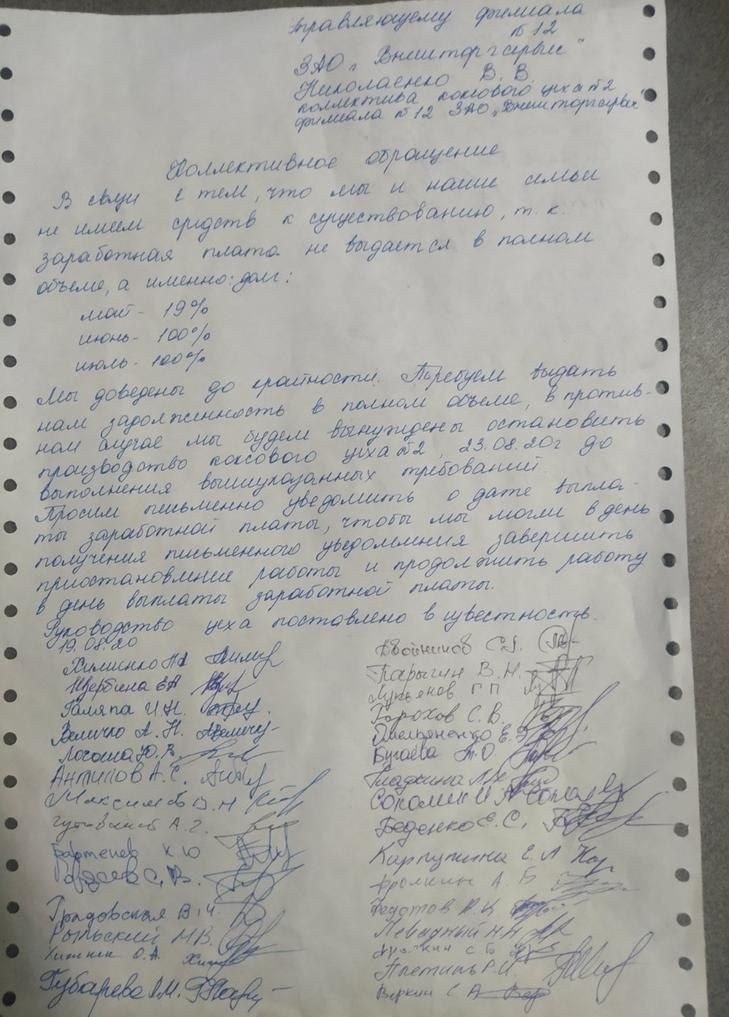 Управляющему филиала
№12
ЗАО „Внешторгсервис"
Николаенко В. В.
коллектива коксового цеха №2
филиала №12 ЗАО „Внешторгсервис"
Коллективное обращение
В связи с тем, что мы и наши семьи
не имеем средств к существованию, т.к.
заработная плата не выдается в полном
объеме, а именно: долг:
май - 19%
июнь - 100%
июль - 100%
Мы доведены до крайности. Требуем выдать
нам задолженность в полном объеме, в против-
ном случае мы будем вынуждены остановить
производство коксового цеха №2, 23.08.20г до
выполнения вышеуказанных требований
Просим письменно уведомить о дате выпла-
ты заработной платы, чтобы мы могли в день
получения письменного уведомления завершить
приостановление работы и продолжить работу
в день выплаты заработной платы.
Руководство цеха поставлено в известность.
19.08.20
Щербина Е.А.
Галяпа И.Н.
Величко А. Н.
Логоша Ю.В.
Антипов А.С.
Максимов В.Н
А.Г.
К.Ю
С.В.
В.Ч.
Рыльский Н.В.
О.А.
Губарева
Двойников С.А.
Парыгин В.Н.
Лукьянов Г.П
Горохов С.В.
Омельяненко Е.
Бугаева Т.О.
Гладкина
Соромин И.А
Беденко Е.С.
Карпушина Е.И
А.Б
Федотов
Левадный Н.Н
С.Б
Плетинь Р.И
С А